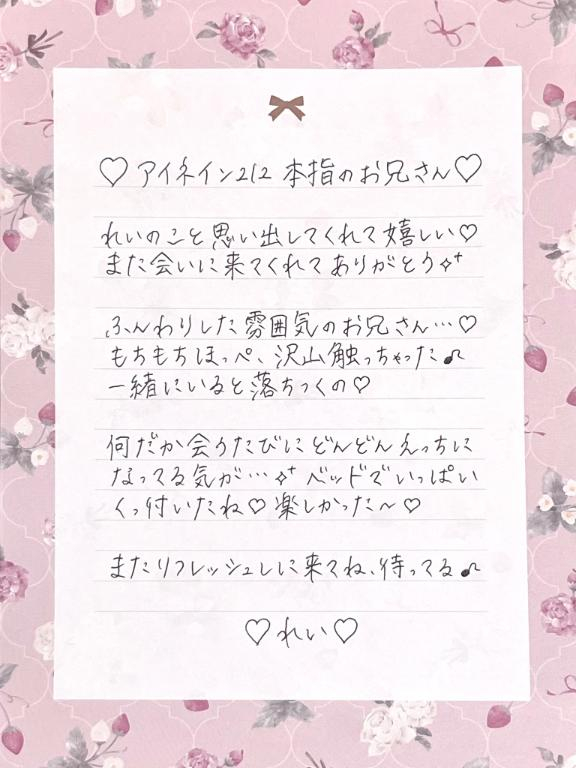 ♡ アイネイン212 本指のお兄さん♡
れいのこと思い出してくれて嬉しい♡
また会いに来てくれてありがとう✧⁺
ふんわりした雰囲気のお兄さん…♡
もちもちほっぺ、沢山触っちゃった♪
一緒にいると落ちつくの♡
何だか会うたびにどんどんえっちに
なってる気が…✧⁺ ベッドでいっぱい
くっ付いたね♡ 楽しかった〜♡
またリフレッシュしに来てね、待ってる♪
♡れい♡